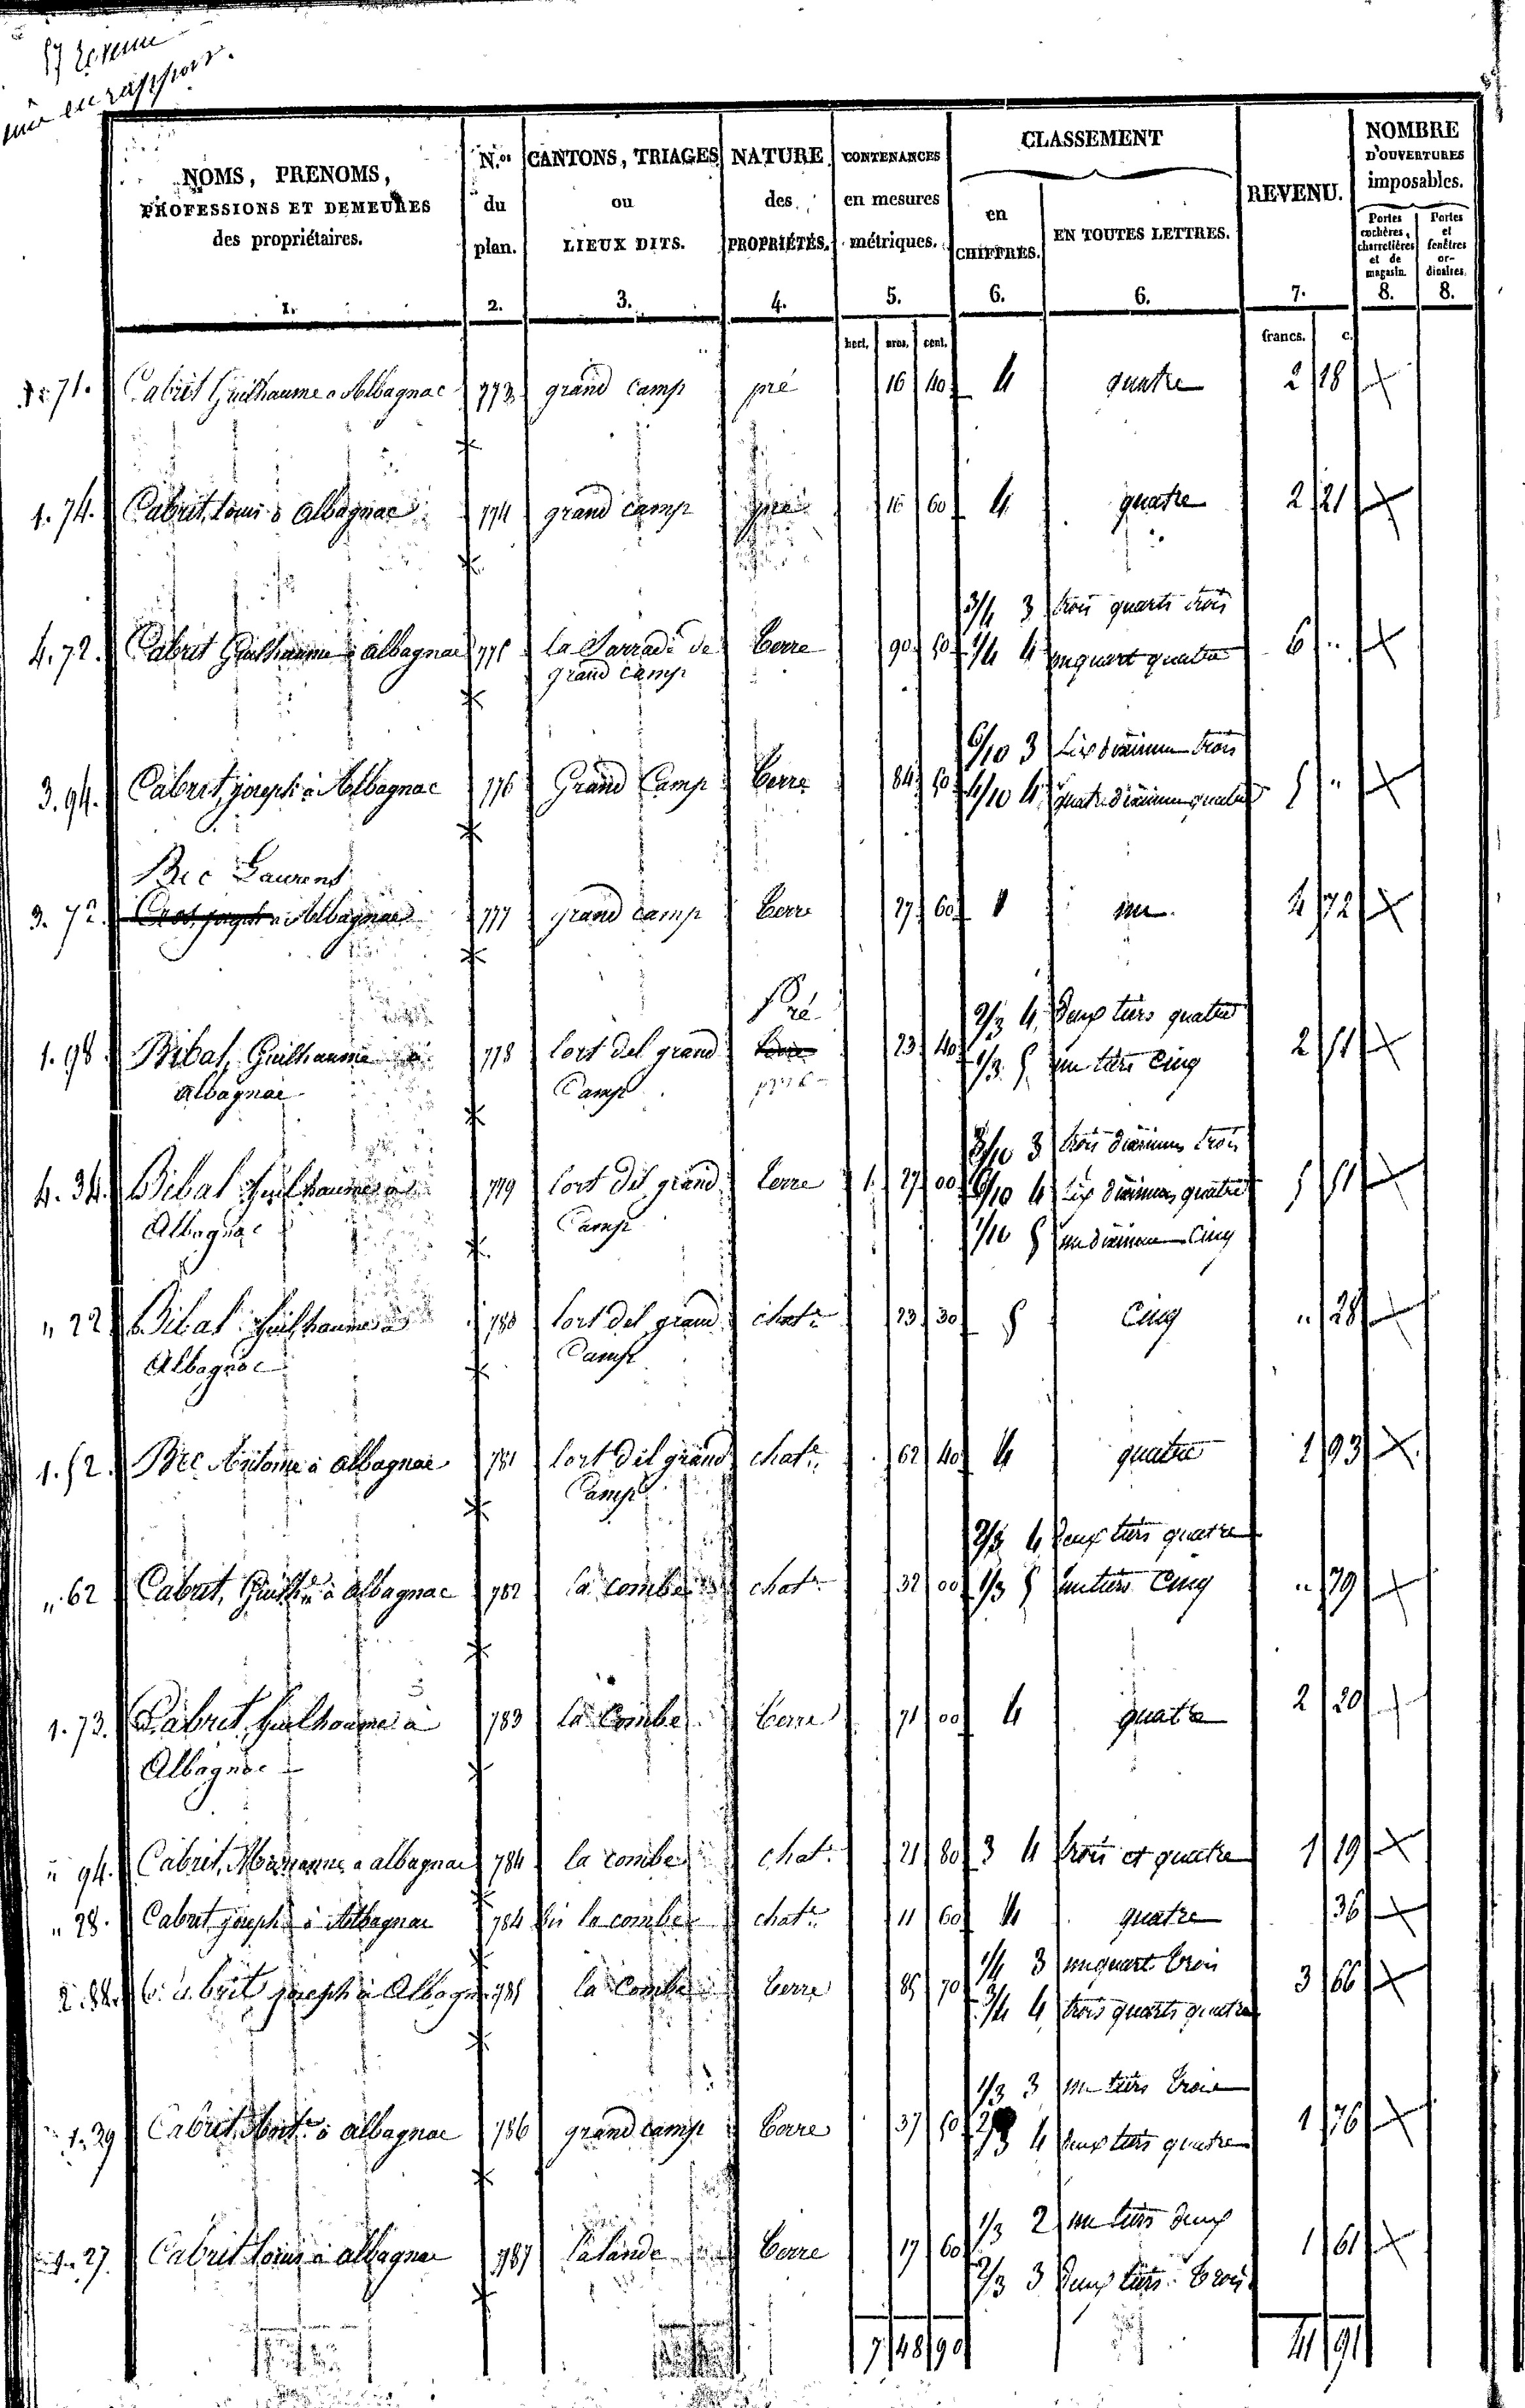 Revenu
mis en rapport.
NOMS, PRENOMS,
PROFESSIONS ET DEMEURES
des propriétaires.
1.
N.os
du
plan.
2.
CANTONS, TRIAGES
ou
LIEUX DITS.
3.
NATURE
des
PROPRIÉTÉS.
4.
CONTENANCES
en mesures
métriques.
5.
CLASSEMENT
en
CHIFFRES.
6.
EN TOUTES LETTRES.
6.
REVENU.
7.
NOMBRE
D'OUVERTURES
imposables.
Portes
cochères,
charretières
et de
magasin.
8.
Portes
et
fenêtres
or-
dinaires.
8.
hect. ares. cent. francs. c.
1.71. Cabrit Guilhaume a Albagnac 773 grand camp pré 16 40 4 quatre 2 18
1.74. Cabrit, Louis à albagnac 774 grand camp pré 16 60 4 quatre 2 21
3/4 3 trois quarts trois
4.72. Cabrit Guilhaume à albagnac 775 la Sarrade de terre 90 50 1/4 4 un quart quatre 6 "
grand camp
6/10 3 Six dixiemes trois
3.94. Cabrit, joseph à Albagnac 776 Grand Camp terre 84 50 4/10 4 quatre dixiemes quatre 5 "
Bec Laurent
3.72. Cros joseph à Albagnac 777 grand camp terre 27 60 1 un 4 72
Pré 2/3 4 Deux tiers quatre
1.98 Bibal, Guilhaume à 778 lort del grand terre 23 40 1/3 5 un tiers cinq 2 51
albagnac Camp
3/10 3 trois dixiemes trois
4.34. Bibal Guilhaume à 779 lort del grand terre 1 27 00 6/10 4 Six dixiemes quatre 5 51
Albagnac Camp 1/10 5 un dixieme cinq
" 22 Bibal Guilhaume à 780 lort del grand chat.e 23 30 5 cinq " 28
Albagnac Camp
1.52. Bec Antoine à albagnac 781 lort del grand chat.e 62 40 4 quatre 1 93
Camp
2/3 4 Deux tiers quatre
" 62 Cabrit, Guilh.me à albagnac 782 la combe chat.e 32 00 1/3 5 un tiers cinq " 79
1.73. Cabrit, Guilhaume à 783 la Combe terre 71 00 4 quatre 2 20
Albagnac
" 94. Cabrit, Marianne a albagnac 784 la combe chat.e 21 80 3 4 trois et quatre 1 19
" 28. Cabrit joseph à Albagnac 784 bis la combe chat.e 11 60 4 quatre 36
1/4 3 un quart trois
2.84. Cabrit joseph à Albagn 785 la Combe terre 85 70 3/4 4 trois quarts quatre 3 66
1/3 3 un tiers trois
1.39 Cabrit Ant.ne à albagnac 786 grand camp terre 37 50 2/3 4 deux tiers quatre 1 76
1/3 2 un tiers deux
1.27. Cabrit Louis à albagnac 787 lalande terre 17 60 2/3 3 Deux tiers trois 1 61
7 48 90 41 91